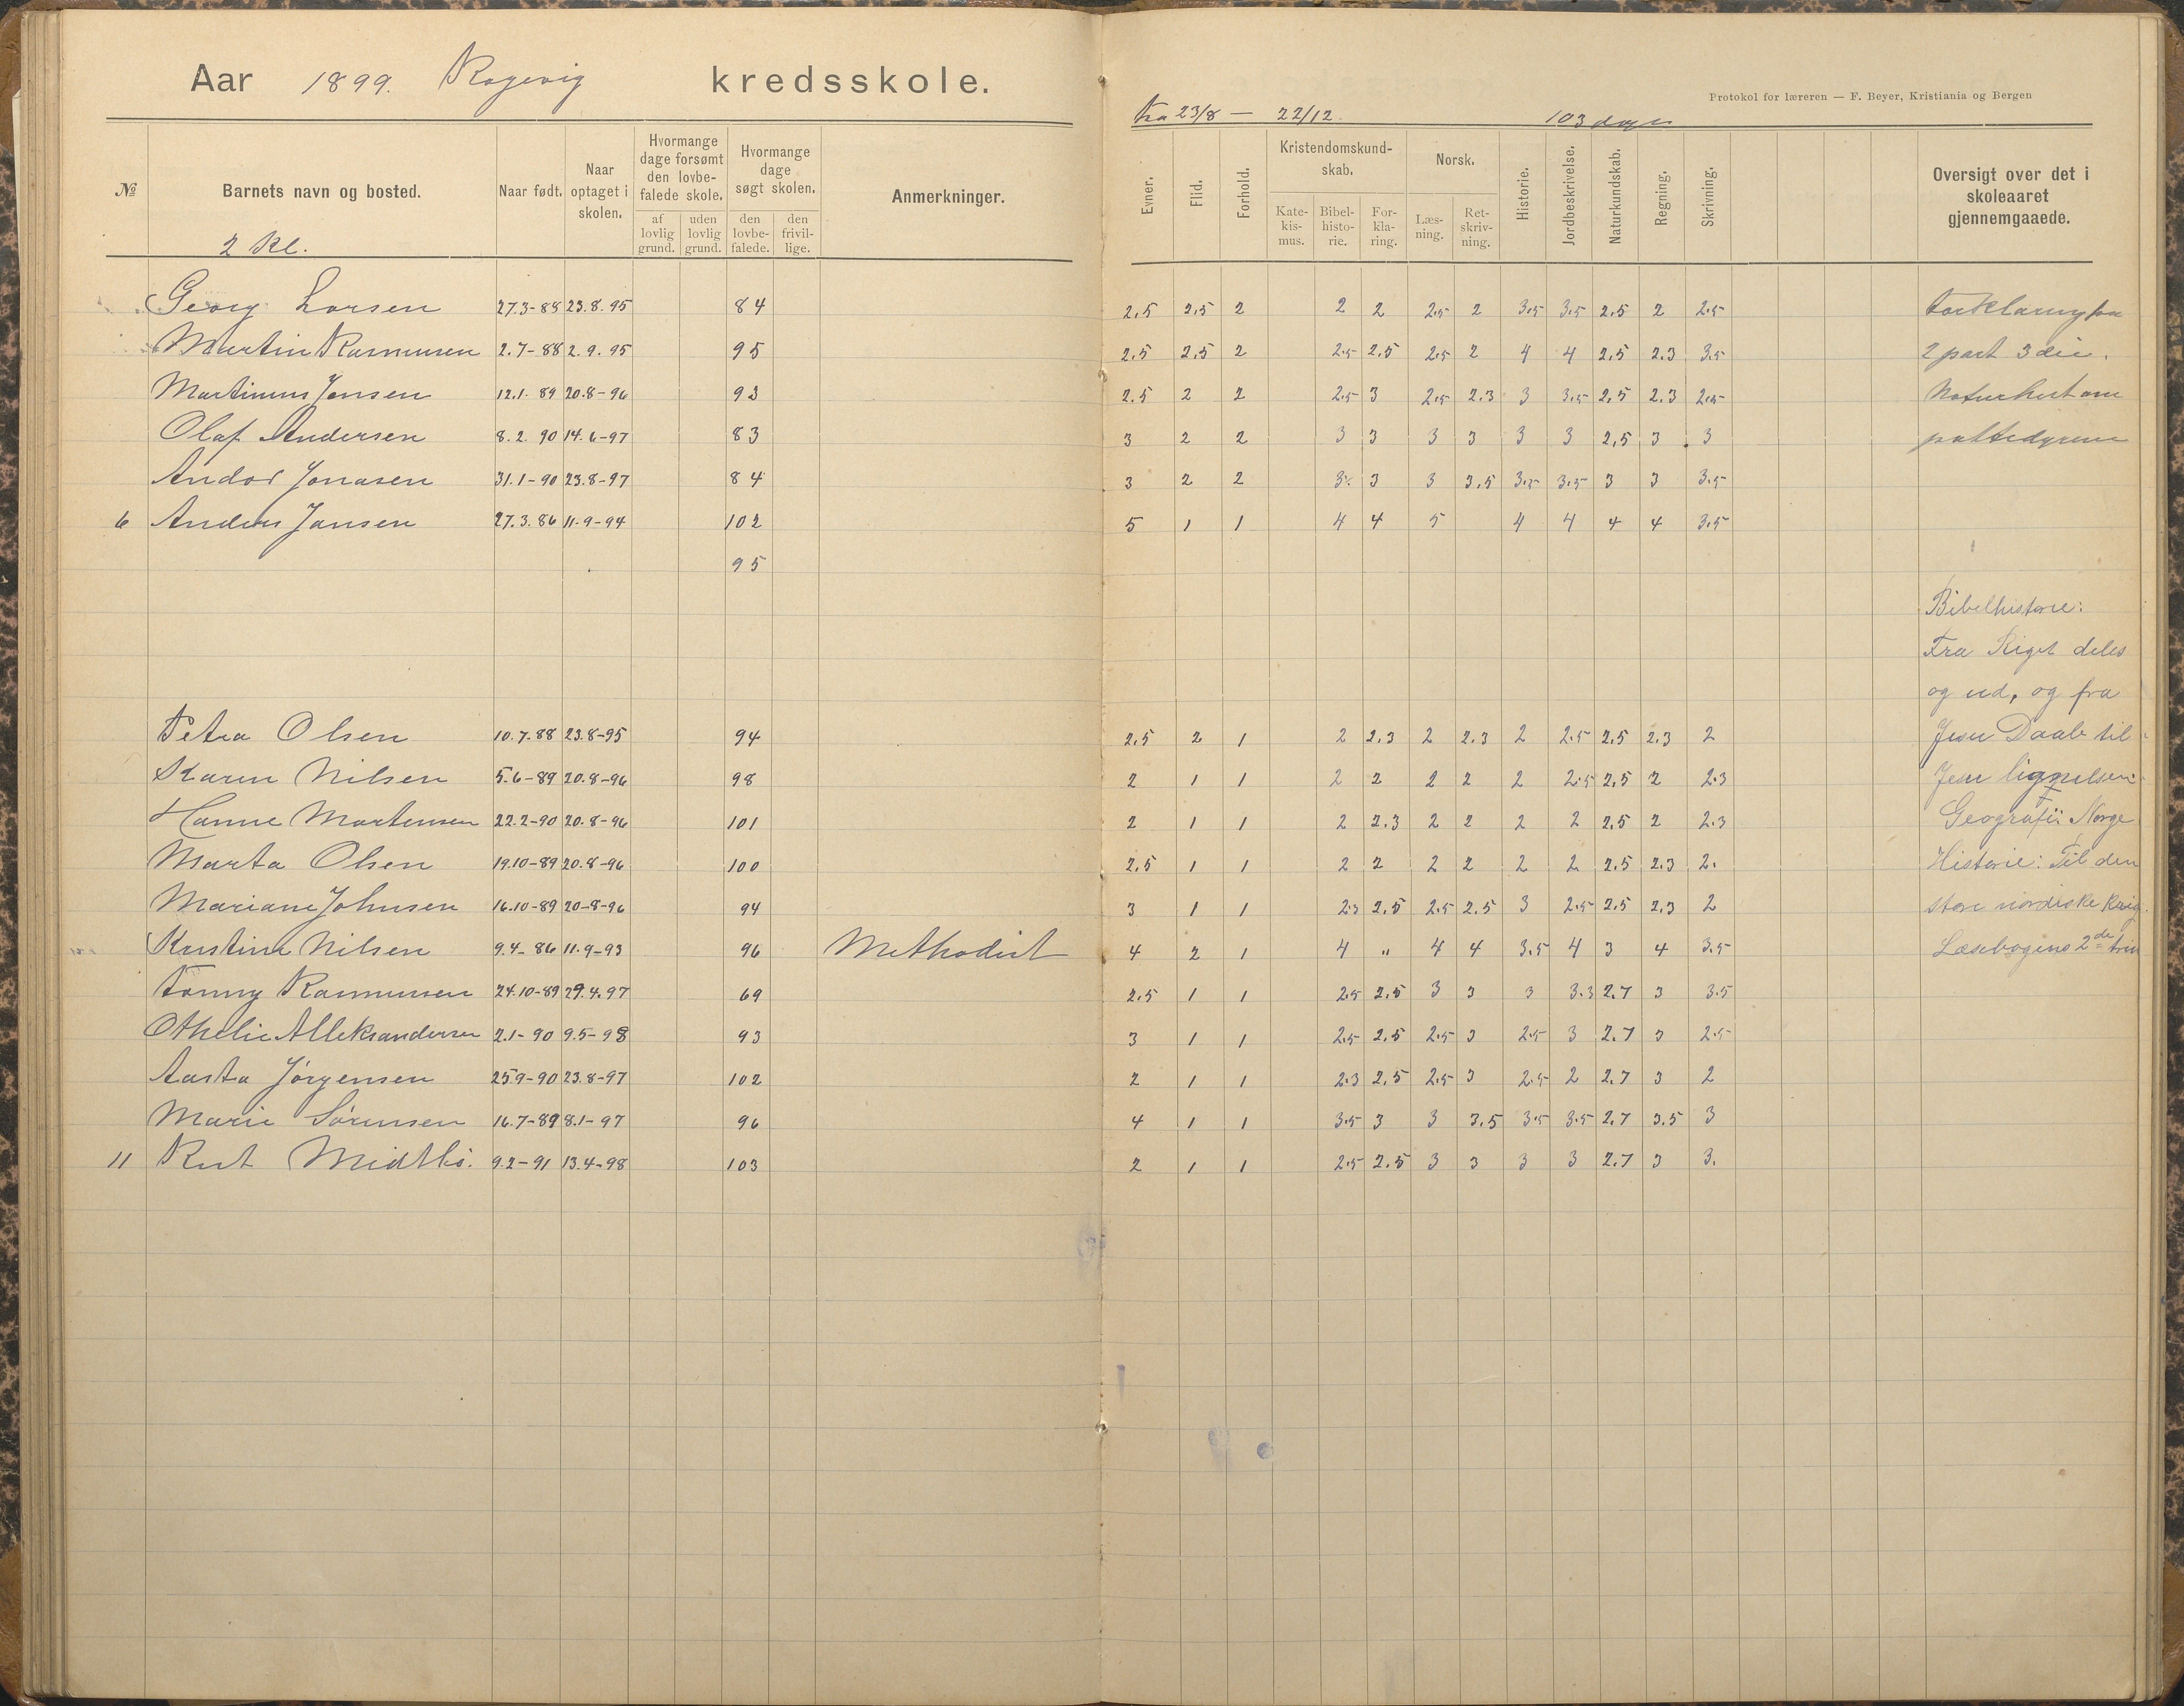 Aar 1899. Rægevig kredsskole.
Protokol for læreren — F. Beyer, Kristiania og Bergen
Fra 23/8 — 22/12 103 dage
№ Barnets navn og bosted. Naar født. Naar optaget i skolen. Hvormange dage forsømt den lovbefalede skole. af lovlig grund. uden lovlig grund. Hvormange dage søgt skolen. den lovbefalede. den frivillige. Anmerkninger. Evner. Flid. Forhold. Kristendomskundskab. Katekismus. Bibelhistorie. Forklaring. Norsk. Læsning. Retskrivning. Historie. Jordbeskrivelse. Naturkundskab. Regning. Skrivning. Oversigt over det i skoleaaret gjennemgaaede.
2 Kl.
Georg Larsen 27.3-88 23.8.95 84 2.5 2.5 2 2 2 2.5 2 3.5 3.5 2.5 2 2.5 Forklaring fra
Martin Rasmussen 2.7-88 2.9.95 95 2.5 2.5 2 2.5 2.5 2.5 2 4 4 2.5 2.3 3.5 2 part 3 die.
Martinius Jensen 12.1.89 20.8-96 93 2.5 2 2 2.5 3 2.5 2.3 3 3.5 2.5 2.3 2.5 Naturhist om
Olaf Andersen 8.2.90 14.6-97 83 3 2 2 3 3 3 3 3 3 2.5 3 3 pattedyrene
Andor Jonasen 31.1-90 23.8-97 84 3 2 2 3 3 3 3.5 3.5 3.5 3 3 3.5
6 Anders Jansen 27.3.86 11.9-94 102 5 1 1 4 4 5 4 4 4 4 3.5
95
Bibelhistorie:
Fra Riget deles
og ud, og fra
Petra Olsen 10.7.88 23.8-95 94 2.5 2 1 2 2.3 2 2.3 2 2.5 2.5 2.3 2 Jesu Daab til
Karen Nilsen 5.6-89 20.8-96 98 2 1 1 2 2 2 2 2 2.5 2.5 2 2.3 Jesu lignelsen.
Hanne Mortensen 22.2-90 20.8-96 101 2 1 1 2 2.3 2 2 2 2 2.5 2 2.3 Geografi: Norge
Marta Olsen 19.10-89 20.8-96 100 2.5 1 1 2 2 2 2 2 2 2.5 2.3 2. Historie: Til den
Mariane Johnsen 16.10-89 20-8-96 94 3 1 1 2.3 2.5 2.5 2.5 3 2.5 2.5 2.3 2 store nordiske krig.
Kristine Nilsen 9.4-86 11.9-93 96 Methodist 4 2 1 4 " 4 4 3.5 4 3 4 3.5 Læsebogens 2de trin
Fanny Rasmussen 24.10-89 29.4.97 69 2.5 1 1 2.5 2.5 3 3 3 3.3 2.7 3 3.5
Othelie Alleksandersen 2.1-90 9.5-98 93 3 1 1 2.5 2.5 2.5 3 2.5 3 2.7 3 2.5
Aasta Jørgensen 25.9-90 23.8-97 102 2 1 1 2.3 2.5 2.5 3 2.5 2 2.7 3 2
Marie Sørensen 16.7-89 8.1-97 96 4 1 1 3.5 3 3 3.5 3.5 3.5 2.7 3.5 3
11 Rut Midtbø. 9.2-91 13.4-98 103 2 1 1 2.5 2.5 3 3 3 3 2.7 3 3.